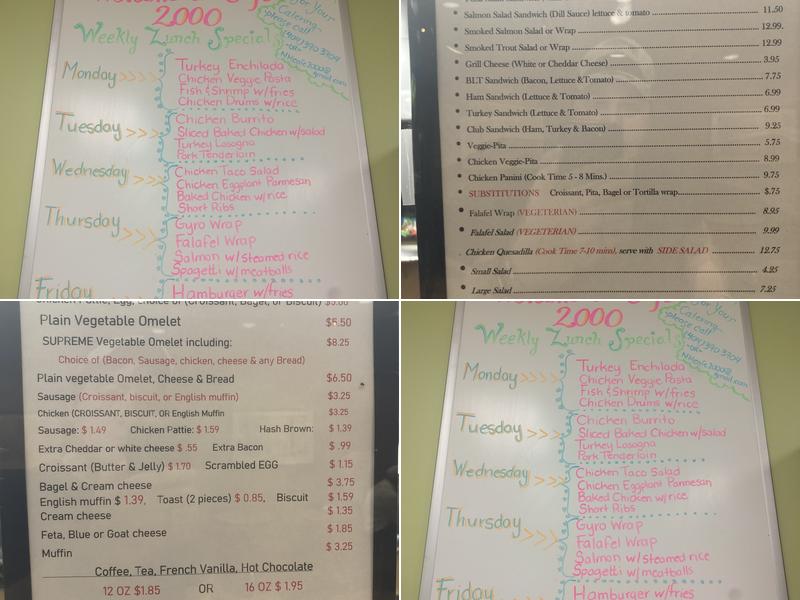 2000
for Your
Catering
please call
(404) 390 3704
-OR-
gmail.com
Weekly Lunch Special
Monday >>>>
Turkey Enchilada
Chicken Veggie Pasta
Fish & Shrimp w/fries
Chicken Drums w/rice
Tuesday >>>
Chicken Burrito
Sliced Baked Chicken w/salad
Turkey Lasogna
Pork Tenderloin
Wednesday >>>
Chicken Taco Salad
Chicken Eggplant Parmesan
Baked Chicken w/rice
Short Ribs
Thursday >>>
Gyro Wrap
Falafel Wrap
Salmon w/Steamed rice
Spagetti w/meatballs
Friday
Hamburger w/fries
Salmon Salad Sandwich (Dill Sauce) lettuce & tomato 11.50
Smoked Salmon Salad or Wrap 12.99.
Smoked Trout Salad or Wrap 12.99
Grill Cheese (White or Cheddar Cheese) 3.95
BLT Sandwich (Bacon, Lettuce & Tomato) 7.75
Ham Sandwich (Lettuce & Tomato) 6.99
Turkey Sandwich (Lettuce & Tomato) 6.99
Club Sandwich (Ham, Turkey & Bacon) 9.25
Veggie-Pita 5.75
Chicken Veggie-Pita 8.99
Chicken Panini (Cook Time 5 - 8 Mins.) 9.75
SUBSTITUTIONS Croissant, Pita, Bagel or Tortilla wrap $.75
Falafel Wrap (VEGETERIAN) 8.95
Falafel Salad (VEGETERIAN) 9.99
Chicken Quesadilla (Cook Time 7-10 mins), serve with SIDE SALAD 12.75
Small Salad 4.25
Large Salad 7.25
Plain Vegetable Omelet $5.50
SUPREME Vegetable Omelet including: $8.25
Choice of (Bacon, Sausage, chicken, cheese & any Bread)
Plain vegetable Omelet, Cheese & Bread $6.50
Sausage (Croissant, biscuit, or English muffin) $3.25
Chicken (CROISSANT, BISCUIT, OR English Muffin $3.25
Sausage: $ 1.49 Chicken Pattie: $ 1.59 Hash Brown: $ 1.39
Extra Cheddar or white cheese $ .55 Extra Bacon $ .99
Croissant (Butter & Jelly) $ 1.70 Scrambled EGG $ 1.15
Bagel & Cream cheese $ 3.75
English muffin $ 1.39, Toast (2 pieces) $ 0.85, Biscuit $ 1.59
Cream cheese $ 1.35
Feta, Blue or Goat cheese $ 1.85
Muffin $ 3.25
Coffee, Tea, French Vanilla, Hot Chocolate
12 OZ $1.85 OR 16 OZ $ 1.95
2000
for Your
Catering
please call
(404) 390 3704
-OR-
gmail.com
Weekly Lunch Special
Monday >>>>
Turkey Enchilada
Chicken Veggie Pasta
Fish & Shrimp w/fries
Chicken Drums w/rice
Tuesday >>>
Chicken Burrito
Sliced Baked Chicken w/salad
Turkey Lasogna
Pork Tenderloin
Wednesday >>>
Chicken Taco Salad
Chicken Eggplant Parmesan
Baked Chicken w/rice
Short Ribs
Thursday >>>
Gyro Wrap
Falafel Wrap
Salmon w/Steamed rice
Spagetti w/meatballs
Friday
Hamburger w/fries